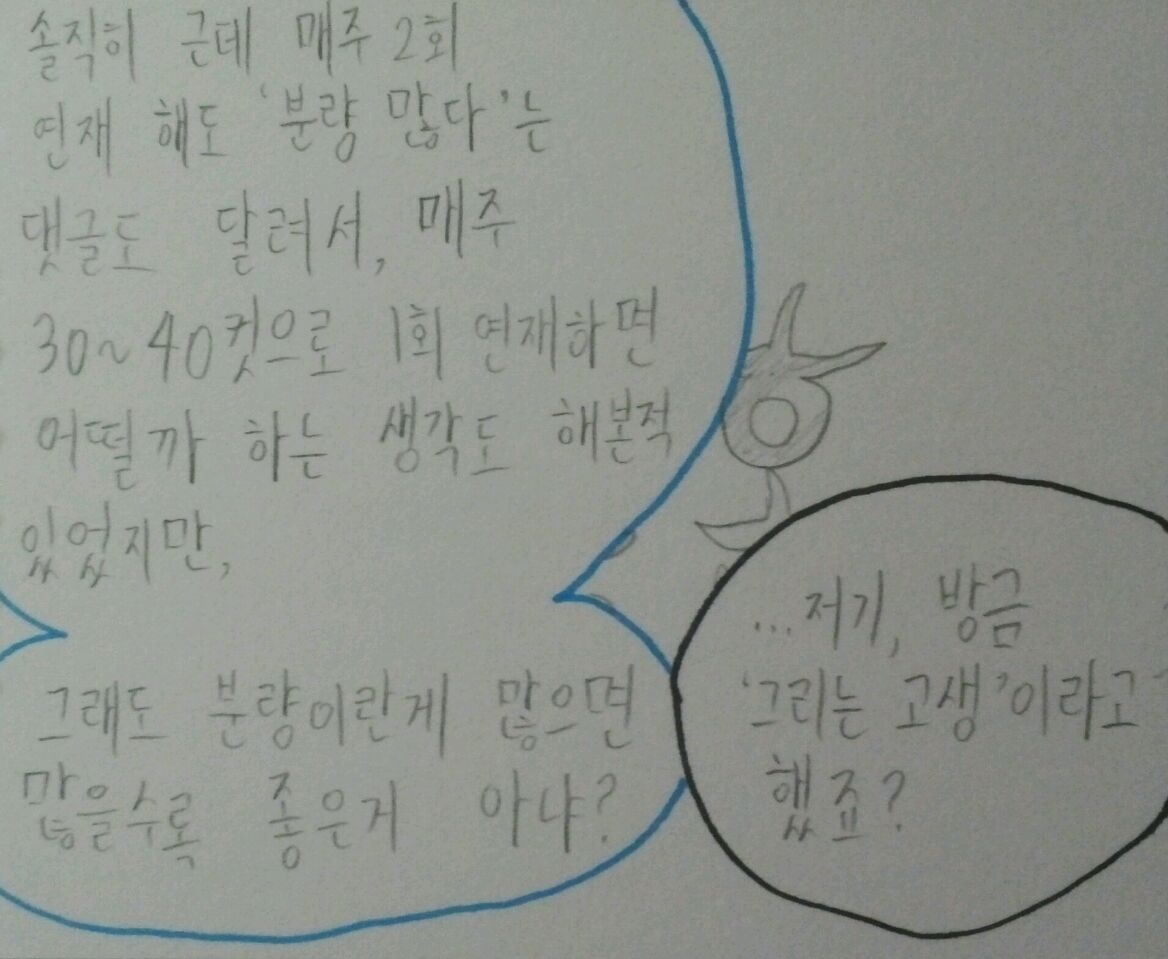 솔직히 근데 매주 2회
연재 해도 '분량 많다'는
댓글도 달려서, 매주
30~40컷으로 1회 연재하면
어떨까 하는 생각도 해본적
있었지만,
그래도 분량이란게 많으면
많을수록 좋은거 아냐?
...저기, 방금
'그리는 고생'이라고
했죠?